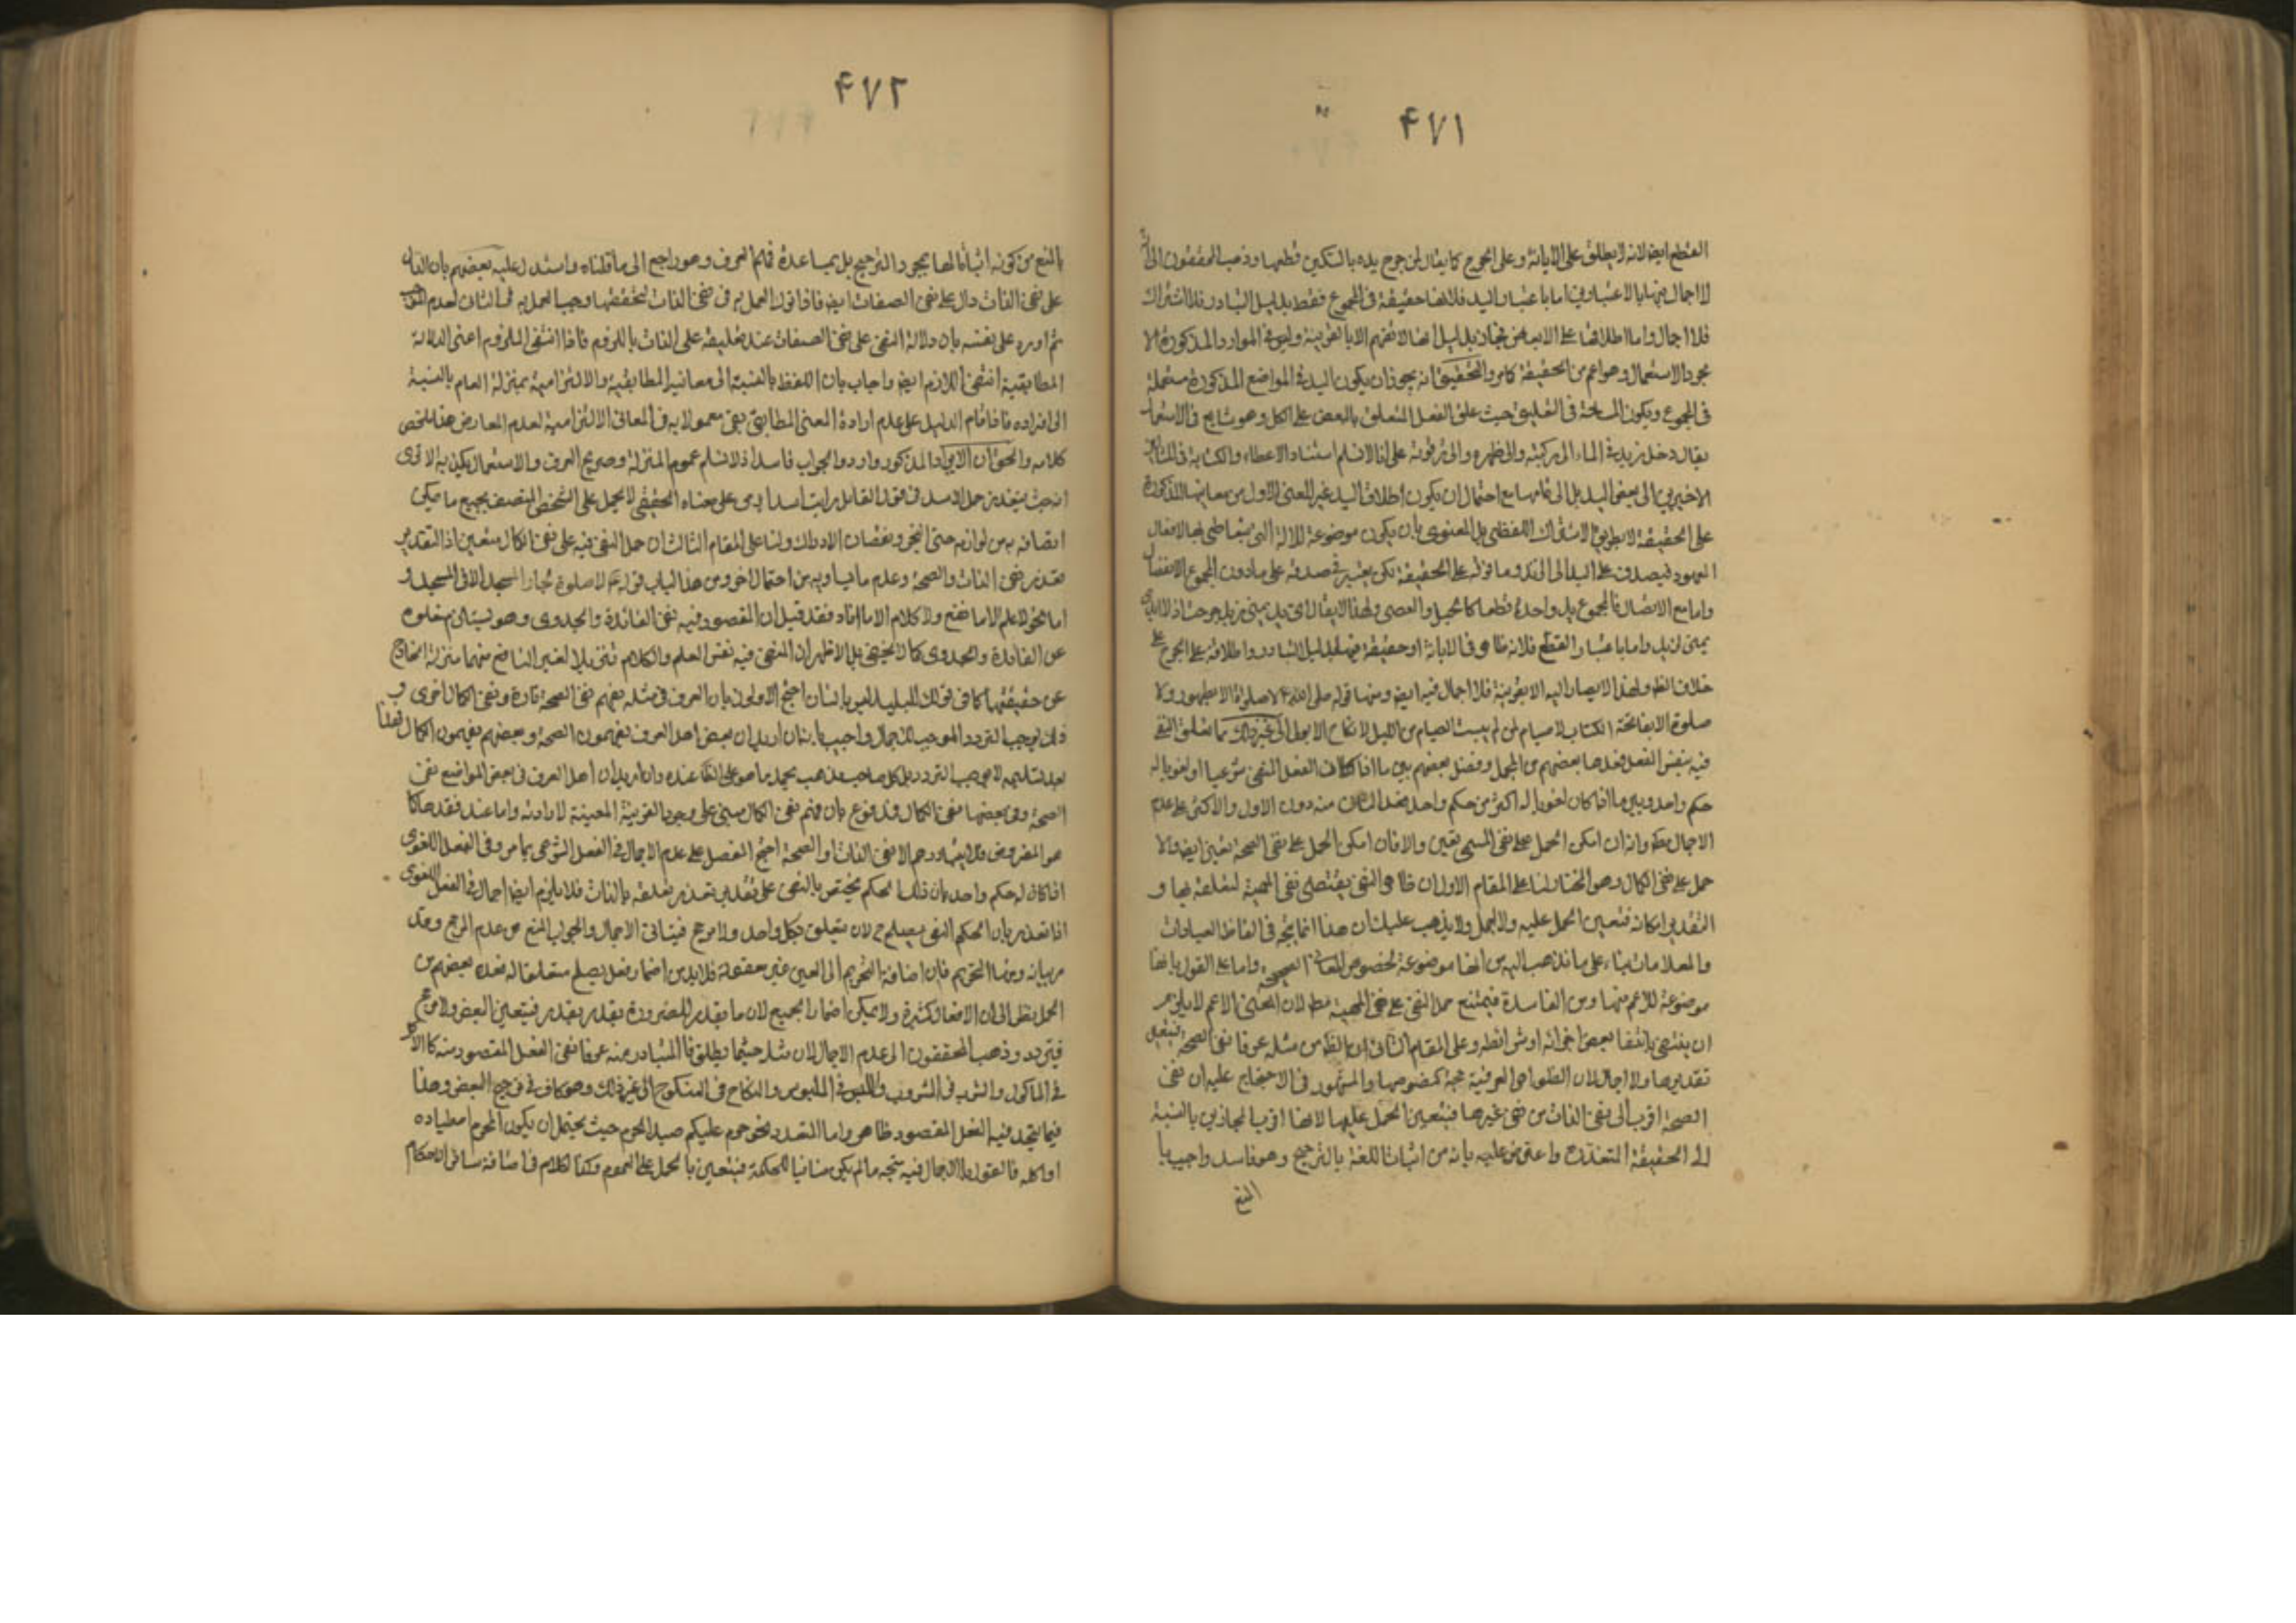 ۴۷۱
القطع ايض لانه يطلق على الابانة وعلى الجرح كما يقال لمن جرح يده بالسكين قطعها وذهب المحققون الى انه
لا اجمال فيها بالاعتبارين اما باعتبار اليد فلانها حقيقة في المجموع فقط بدليل التبادر فلا اشتراك
فلا اجمال واما اطلاقها على الابعاض فمجاز بدليل انها لا تفهم الا بالقرينة وليس في الموارد المذكورة الا
مجرد الاستعمال وهو اعم من الحقيقة كما مر والتحقيق انه يجوز ان يكون اليد في المواضع المذكورة مستعملة
في المجموع ويكون المسامحة في التعليق حيث علق الفعل المتعلق بالبعض على الكل وهو شايع في الاستعمال
يقال دخل زيد في الماء الى ركبته والى ظهره والى ترقوته على انا لا نسلم استناد الاعطاء والكتابة في المثالين
الاخيرين الى بعض اليد بل الى تمامها مع احتمال ان يكون اطلاق اليد غير المعنى الاول من معانيها المذكورة
على الحقيقة لا بطريق الاشتراك اللفظي بل المعنوي بان يكون موضوعة للالة التي يتعاطى بها الافعال
المعهود فيصدق على اليد الى الزند وما فوقه على الحقيقة لكن يعتبر في صدقه على ما دون المجموع الانفصال
واما مع الاتصال فالمجموع يد واحدة قطعا كالحبل والعصى ولهذا لا يقال
يمنى لزيد واما باعتبار القطع فلانه ظاهر في الابانة او حقيقة فيها بدليل التبادر واطلاقه على الجرح على
خلاف الظ ولهذا لا يصار اليه الا بقرينة فلا اجمال فيه ايض ومنها قوله صلى الله لا صلوة الا بطهور ولا
صلوة الا بفاتحة الكتاب لا صيام لمن لم يبيت الصيام من الليل لا نكاح الا بولي الى غير ذلك مما تعلق النفي
فيه بنفس الفعل فعدها بعضهم من المجمل وفصل بعضهم بين ما اذا كان الفعل المنفي شرعيا او لغويا له
حكم واحد وبين ما اذا كان لغويا له اكثر من حكم واحد فعد الثاني منه دون الاول والاكثر على عدم
الاجمال مط وانه ان امكن الحمل على نفي المسمى تعين والا فان امكن الحمل على نفي الصحة تعين ايض والا
حمل على نفي الكمال وهو المختار لنا على المقام الاول ان ظاهر النفي يقتضي نفي المهية لتعلقه بها و
التقدير امكانه فتعين الحمل عليه ولا اجمال ولا يذهب عليك ان هذا انما يتجه في الفاظ العبادات
والمعاملات بناء على ما نذهب اليه من انها موضوعة لخصوص المعاني الصحيحة واما على القول بانها
موضوعة للاعم منها ومن الفاسدة فيمتنع حمل النفي على نفي المهية مط لان المعنى الاعم لا يلزم
ان ينتفي بانتفاء بعض اجزائه او شرائطه وعلى المقام الثاني ان الظ من مثله عرفا نفي الصحة فيتعين
تقديرها ولا اجمال لان الظواهر العرفية حجة كنصوصها والمشهور في الاحتجاج عليه ان نفي
الصحة اقرب الى نفي الذات من نفي غيرها فيتعين الحمل عليها لانها اقرب المجازين بالنسبة
الى الحقيقة المتعذرة واعترض عليه بانه من اثبات اللغة بالترجيح وهو فاسد واجيب با
المنع
۴۷۲
بالمنع من كونه اثباتا لها بمجرد الترجيح بل بمساعدة فهم العرف وهو راجع الى ما قلناه واستدل عليه بعضهم بان الدال
على نفي الذات دال على نفي الصفات ايض فاذا ترك العمل به في نفي الذات لتحققها وجب العمل به في الثاني لعدم
ثم اورد على نفسه بان دلالة النفي على نفي الصفات عند تعليقه على الذات باللزوم فاذا انتفى الملزوم اعنى الدلالة
المطابقية انتفى اللازم ايض واجاب بان اللفظ بالنسبة الى معانيه المطابقية والالتزامية بمنزلة العام بالنسبة
الى افراده فاذا قام الدليل على عدم ارادة المعنى المطابقي بقي معمولا به في المعاني الالتزامية لعدم المعارض هذا ملخص
كلامه والحق ان الايراد المذكور وارد والجواب فاسد اذ لا نسلم عموم المنزلة وصريح العرف والاستعمال يكذبه الا ترى
انه حيث يتعذر حمل الاسد في قول القائل رايت اسدا يرمى على معناه الحقيقي لا يحمل على الشخص المتصف بجميع ما يمكن
اتصافه به من لوازمه حتى البخر ونقصان الادراك ولنا على المقام الثالث ان حمل النفي فيه على نفي الكمال متعين اذ التقدير
تعذر نفي الذات والصحة وعدم ما يساويه من احتمال اخر ومن هذا الباب قوله لا صلوة لجار المسجد الا في المسجد و
اما نحو لا علم الا ما نفع ولا كلام الا ما افاد فقد قيل ان المقصود فيه نفي الفائدة والجدوى وهو يستلزم خلوه
عن الفائدة والجدوى كما لا يخفى بل الاظهر ان المنفي فيه نفس العلم والكلام تنزيلا لغير النافع منهما منزلة الخارج
عن حقيقتهما كما في قولك للبليد ليس بانسان احتج الاولون بان العرف في مثله يفهم نفي الصحة تارة ونفي الكمال اخرى و
ذلك يوجب التردد الموجب للاجمال واجيب بانه ان اريد ان بعض اهل العرف يفهمون الصحة وبعضهم يفهمون الكمال فهذا
بعد تسليمه لا يوجب التردد بل كل صاحب مذهب يحمله على ما هو الظاهر عنده وان اريد ان اهل العرف في بعض المواضع نفي
الصحة وفي بعضها نفي الكمال فمدفوع بان فهم نفي الكمال مبني على وجود القرينة المعينة لارادته واما عند فقدها كما
هو المفروض فلا يتبادر الا نفي الذات او الصحة احتج المفصل على عدم الاجمال في الفعل الشرعي بما مر وفي الفعل اللغوي
اذا كان له حكم واحد بان ذلك الحكم يختص بالنفي على تقدير تعذر تعلقه بالذات فلا يلزم ايض اجمال في الفعل اللغوي
اذا تعذر بان الحكم المنفي يصلح ح لان يتعلق بكل واحد ولا مرجح فيتاتى الاجمال والجواب المنع من عدم المرجح وقد
مر بيانه ومنها التحريم فان اضافة التحريم الى العين غير معقولة فلا بد من اضمار فعل يصلح متعلقا له فعده بعضهم من
المجمل نظرا الى ان الافعال كثيرة ولا يمكن اضمار الجميع لان ما يقدر للضرورة يقدر بقدر فيتعين البعض ولا مرجح
فيتردد وذهب المحققون الى عدم الاجمال لان مثله حيثما يطلق فالمتبادر منه عرفا نفي الفعل المقصود منه كالاكل
في الماكول والشرب في المشروب واللبس في الملبوس والنكاح في المنكوح الى غير ذلك وهو كاف في ترجيح البعض وهذا
فيما يتحد فيه الفعل المقصود ظاهر واما التعدد نحو حرم عليكم صيد الحرم حيث يحتمل ان يكون المحرم اصطياده
او اكله فالقول بالاجمال فيه متجه ما لم يكن منافيا للحكمة فيتعين بالحمل على العموم وكذا الكلام في اضافة سائر الاحكام